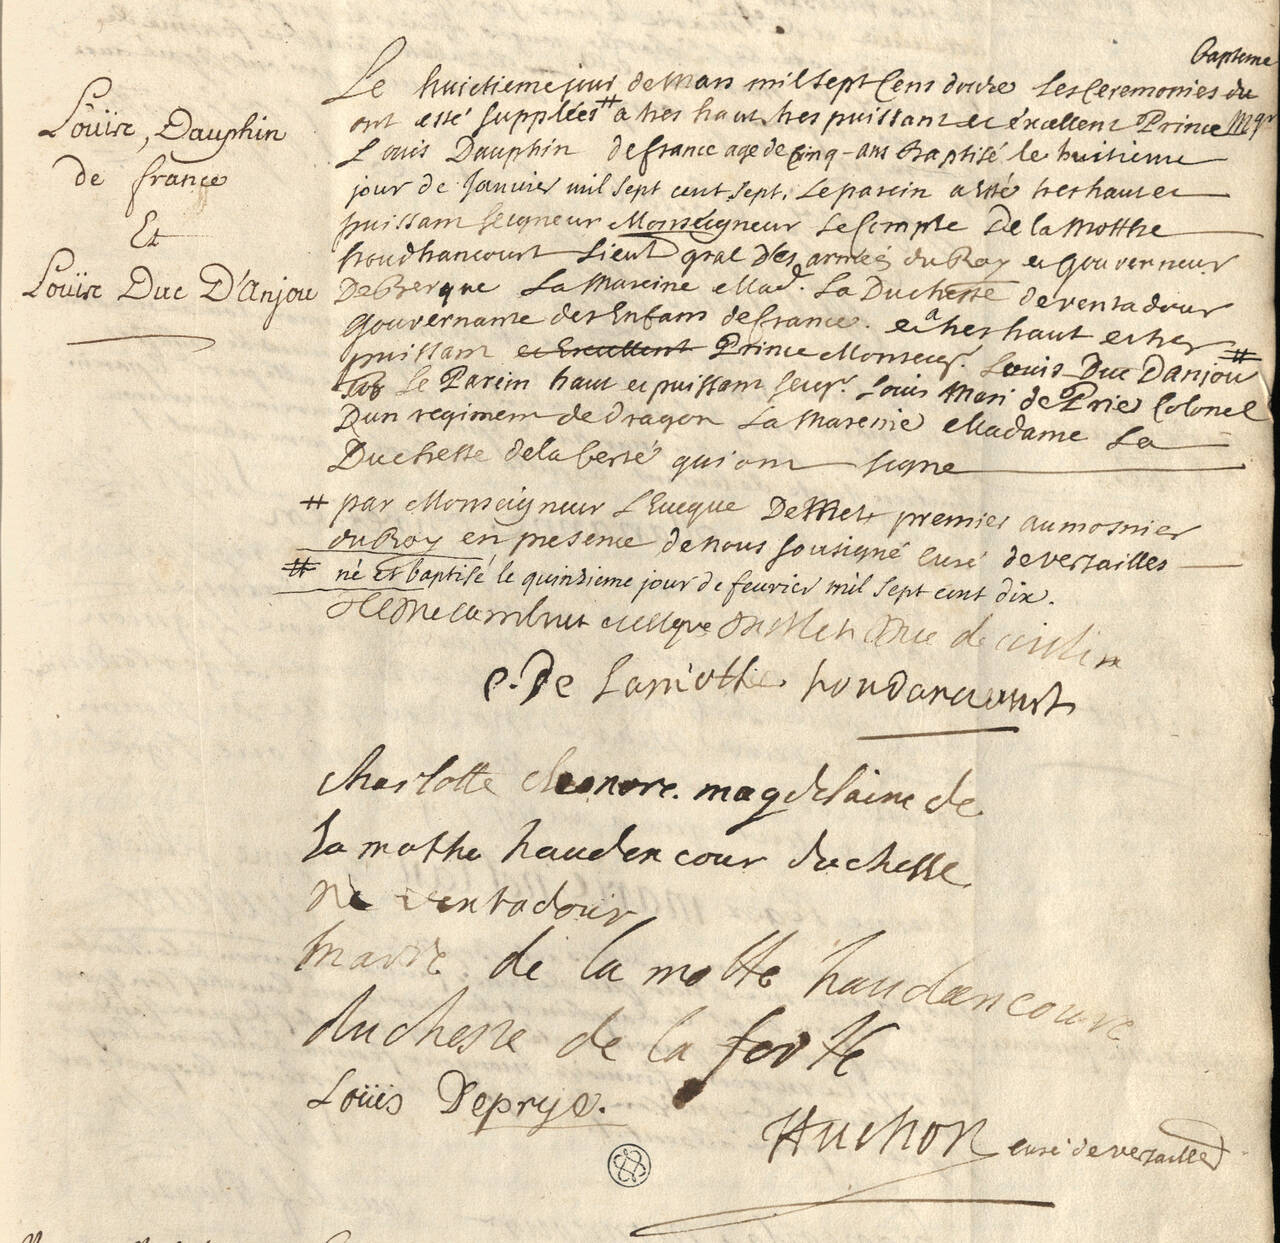 Loüise, Dauphin
de france
Et
Loüise Duc D'Anjou
bapteme
Le huictieme jour de Mars mil sept Cens douze Les Ceremonies du
ont esté supplées # a tres haut, tres puissant et excellent Prince Mgr
Louis Dauphin de france age de cinq ans Baptisé le huitieme
jour de Janvier mil sept cent sept. Le parein a esté tres haut et
puissant seigneur Monseigneur Le Compte De la Motthe
houdhancourt Lieut gral des armées du Roy et Gouverneur
De Bergue La Mareine Mad. La Duchesse de ventadour
Gouvernante des Enfans de france. et a tres haut et tres
puissant et Excellent Prince Monseigr. Louis Duc D'anjou #
Le Parein haut et puissant seigr. Louis Mari de Prie Colonel
D'un regiment de dragon La Mareine Madame La
Duchesse de la ferté qui ont signe
# par Monseigneur L'Eveque De Metz premier aumosnier
du Roy en presence de nous sousigné Curé de versailles
# né et baptisé le quinzieme jour de fevrier mil sept cent dix.
de Metz Duc de
C. De Lamothe houdancourt
Charlotte eleonore magdelaine de
La mothe haudencour duchesse
de ventadour
marie de la motte haudencourt
duchesse de la ferté
Loüis Deprye.
Huchon curé de versailles